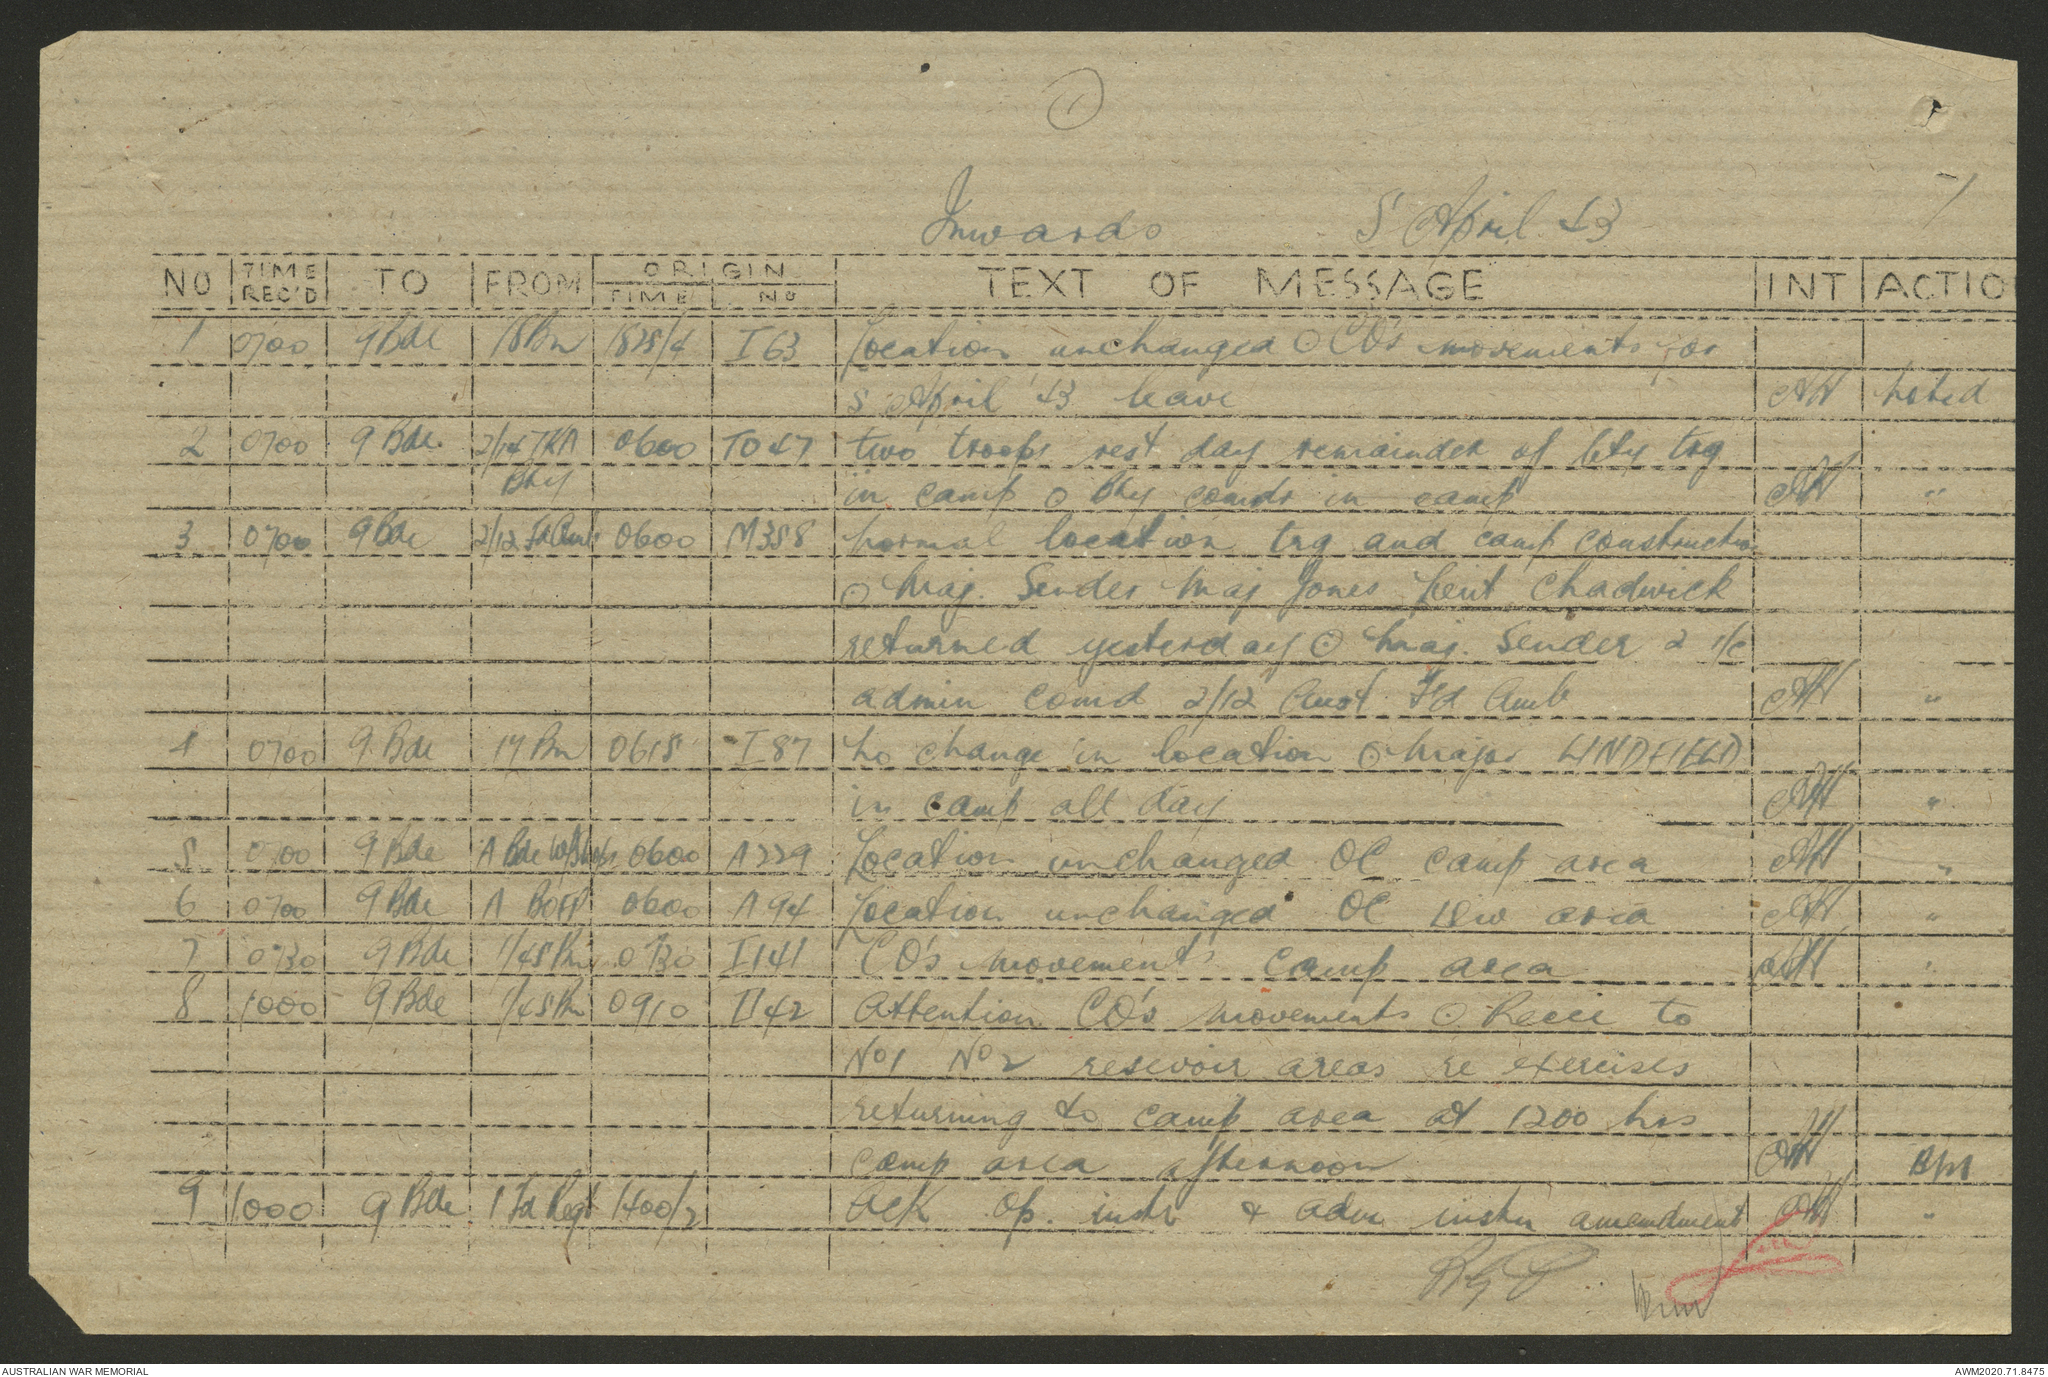 1
Inwards 5 April 43
NO TIME REC'D TO FROM ORIGIN TIME NO TEXT OF MESSAGE INT ACTIO
1 0700 9 Bde 18 Bn 1825/4 I 63 Location unchanged ⊙ CO's movements for
5 April 43 leave AH Noted
2 0700 9 Bde. 2/14 0600 TO 47 two troops rest day remainder of bty trg
Bty in camp ⊙ Bty comds in camp AH "
3 0700 9 Bde 2/12 Fd Amb 0600 M358 Normal location trg and camp construction
⊙ Maj. Sender Maj Jones Leiut Chadwick
returned yesterday ⊙ Maj. Sender 2 i/c
admin comd 2/12 Aust Fd Amb AH "
4 0700 9 Bde 17 Bn 0615 I 87 No change in location ⊙ Major LINDFIELD
in camp all day AH "
5 0700 9 Bde A Bde W/Shops 0600 A 229 Location unchanged OC camp area AH "
6 0700 9 Bde A BOFP 0600 A 94 Location unchanged OC Div area AH "
7 0730 9 Bde 1/45 Bn 0730 I 141 CO's movements camp area AH "
8 1000 9 Bde 1/45 Bn 0910 I 142 Attention CO's movements ⊙ Recce to
No 1 No 2 resevoir areas re exercises
returning to camp area at 1200 hrs
camp area afternoon AH BM
9 1000 9 Bde 1 Fd Regt 1400/2 Ack Op. instr & adm instn amendment AH "
AUSTRALIAN WAR MEMORIAL AWM2020.71.8475